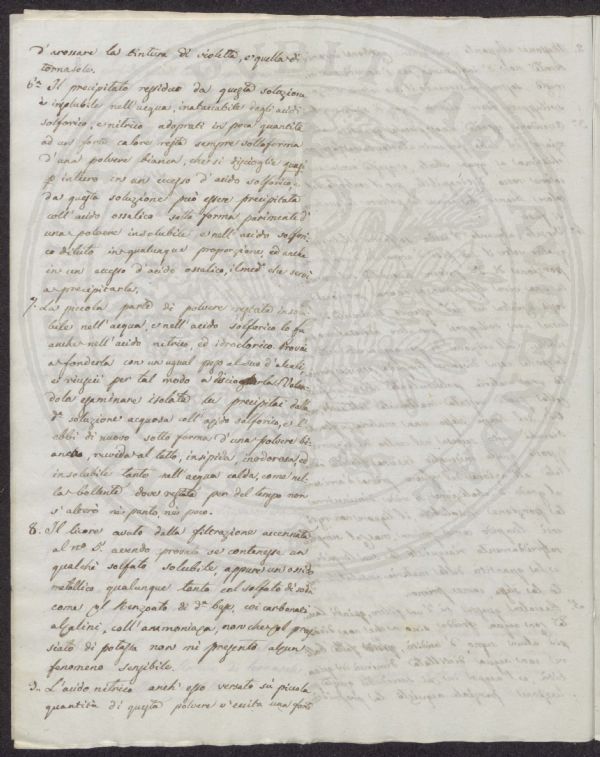 d'arossare la tintura di violetta, e quella di
tornasole.
6.° Il precipitato residuo da questa soluzione
è insolubile nell'acqua, inatacabile degli acidi
solforico, e nitrico adoprati in poca quantità
ad un forte calore resta sempre sotto forma
d'una polvere bianca, che si discioglie quasi
p intiero in un eccesso d'acido solforico, e
da questa soluzione può essere precipitata
coll'acido ossalico sotto forma parimente d'
una polvere insolubile e nell'acido solfori-
co diluto in qualunque proporzione, ed anche
in un eccesso d'acido ossalico, il med.° che servì
a precipitarla.
7. La piccola parte di polvere restata insolu-
bile nell'acqua, e nell'acido solforico lo fu
anche nell'acido nitrico, ed idroclorico. Provai
a fonderla con un ugual peso al suo d'alcali,
e riuscii per tal modo a discioglierla. Volen-
dola esaminare isolata la precipitai dalla
d.a soluzione acquosa coll'acido solforico, e l'
ebbi di nuovo sotto forma d'una polvere bi-
anca, ruvida al tatto, insipida, inodorosa, ed
insolubile tanto nell'acqua calda, come nel-
la bollente dove restata per del tempo non
s'alterò nè punto, nè poco.
8. Il licore avuto dalla filtrazione accennata
al n.° 5. avendo provato se contenesse un
qualche solfato solubile, appure un ossido
metallico qualunque tanto col solfato di soda
come col benzoato di d.a base, coi carbonati
alcalini, coll'ammoniaca, non che col prus-
siato di potassa non mi presentò alcun
fenomeno sensibile.
9. L'acido nitrico anch'esso versato su piccola
quantità di questa polvere v'eccita una forte